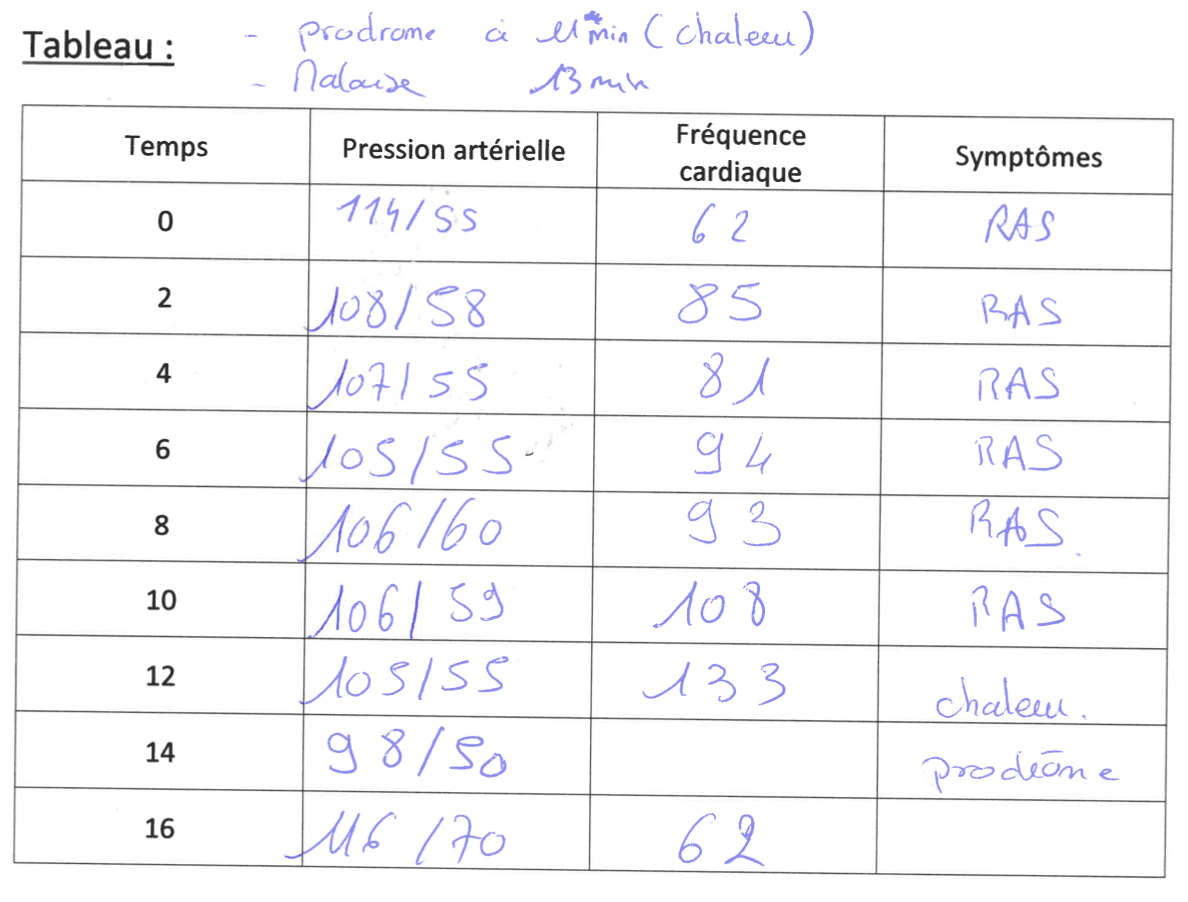 Tableau :
- prodrome à 11 min (chaleur)
- Malaise 13 min
Temps Pression artérielle Fréquence cardiaque Symptômes
0 114/55 62 RAS
2 108/58 85 RAS
4 107/55 81 RAS
6 105/55 94 RAS
8 106/60 93 RAS.
10 106/59 108 RAS
12 105/55 133 chaleur.
14 98/50 prodrôme
16 116/70 62